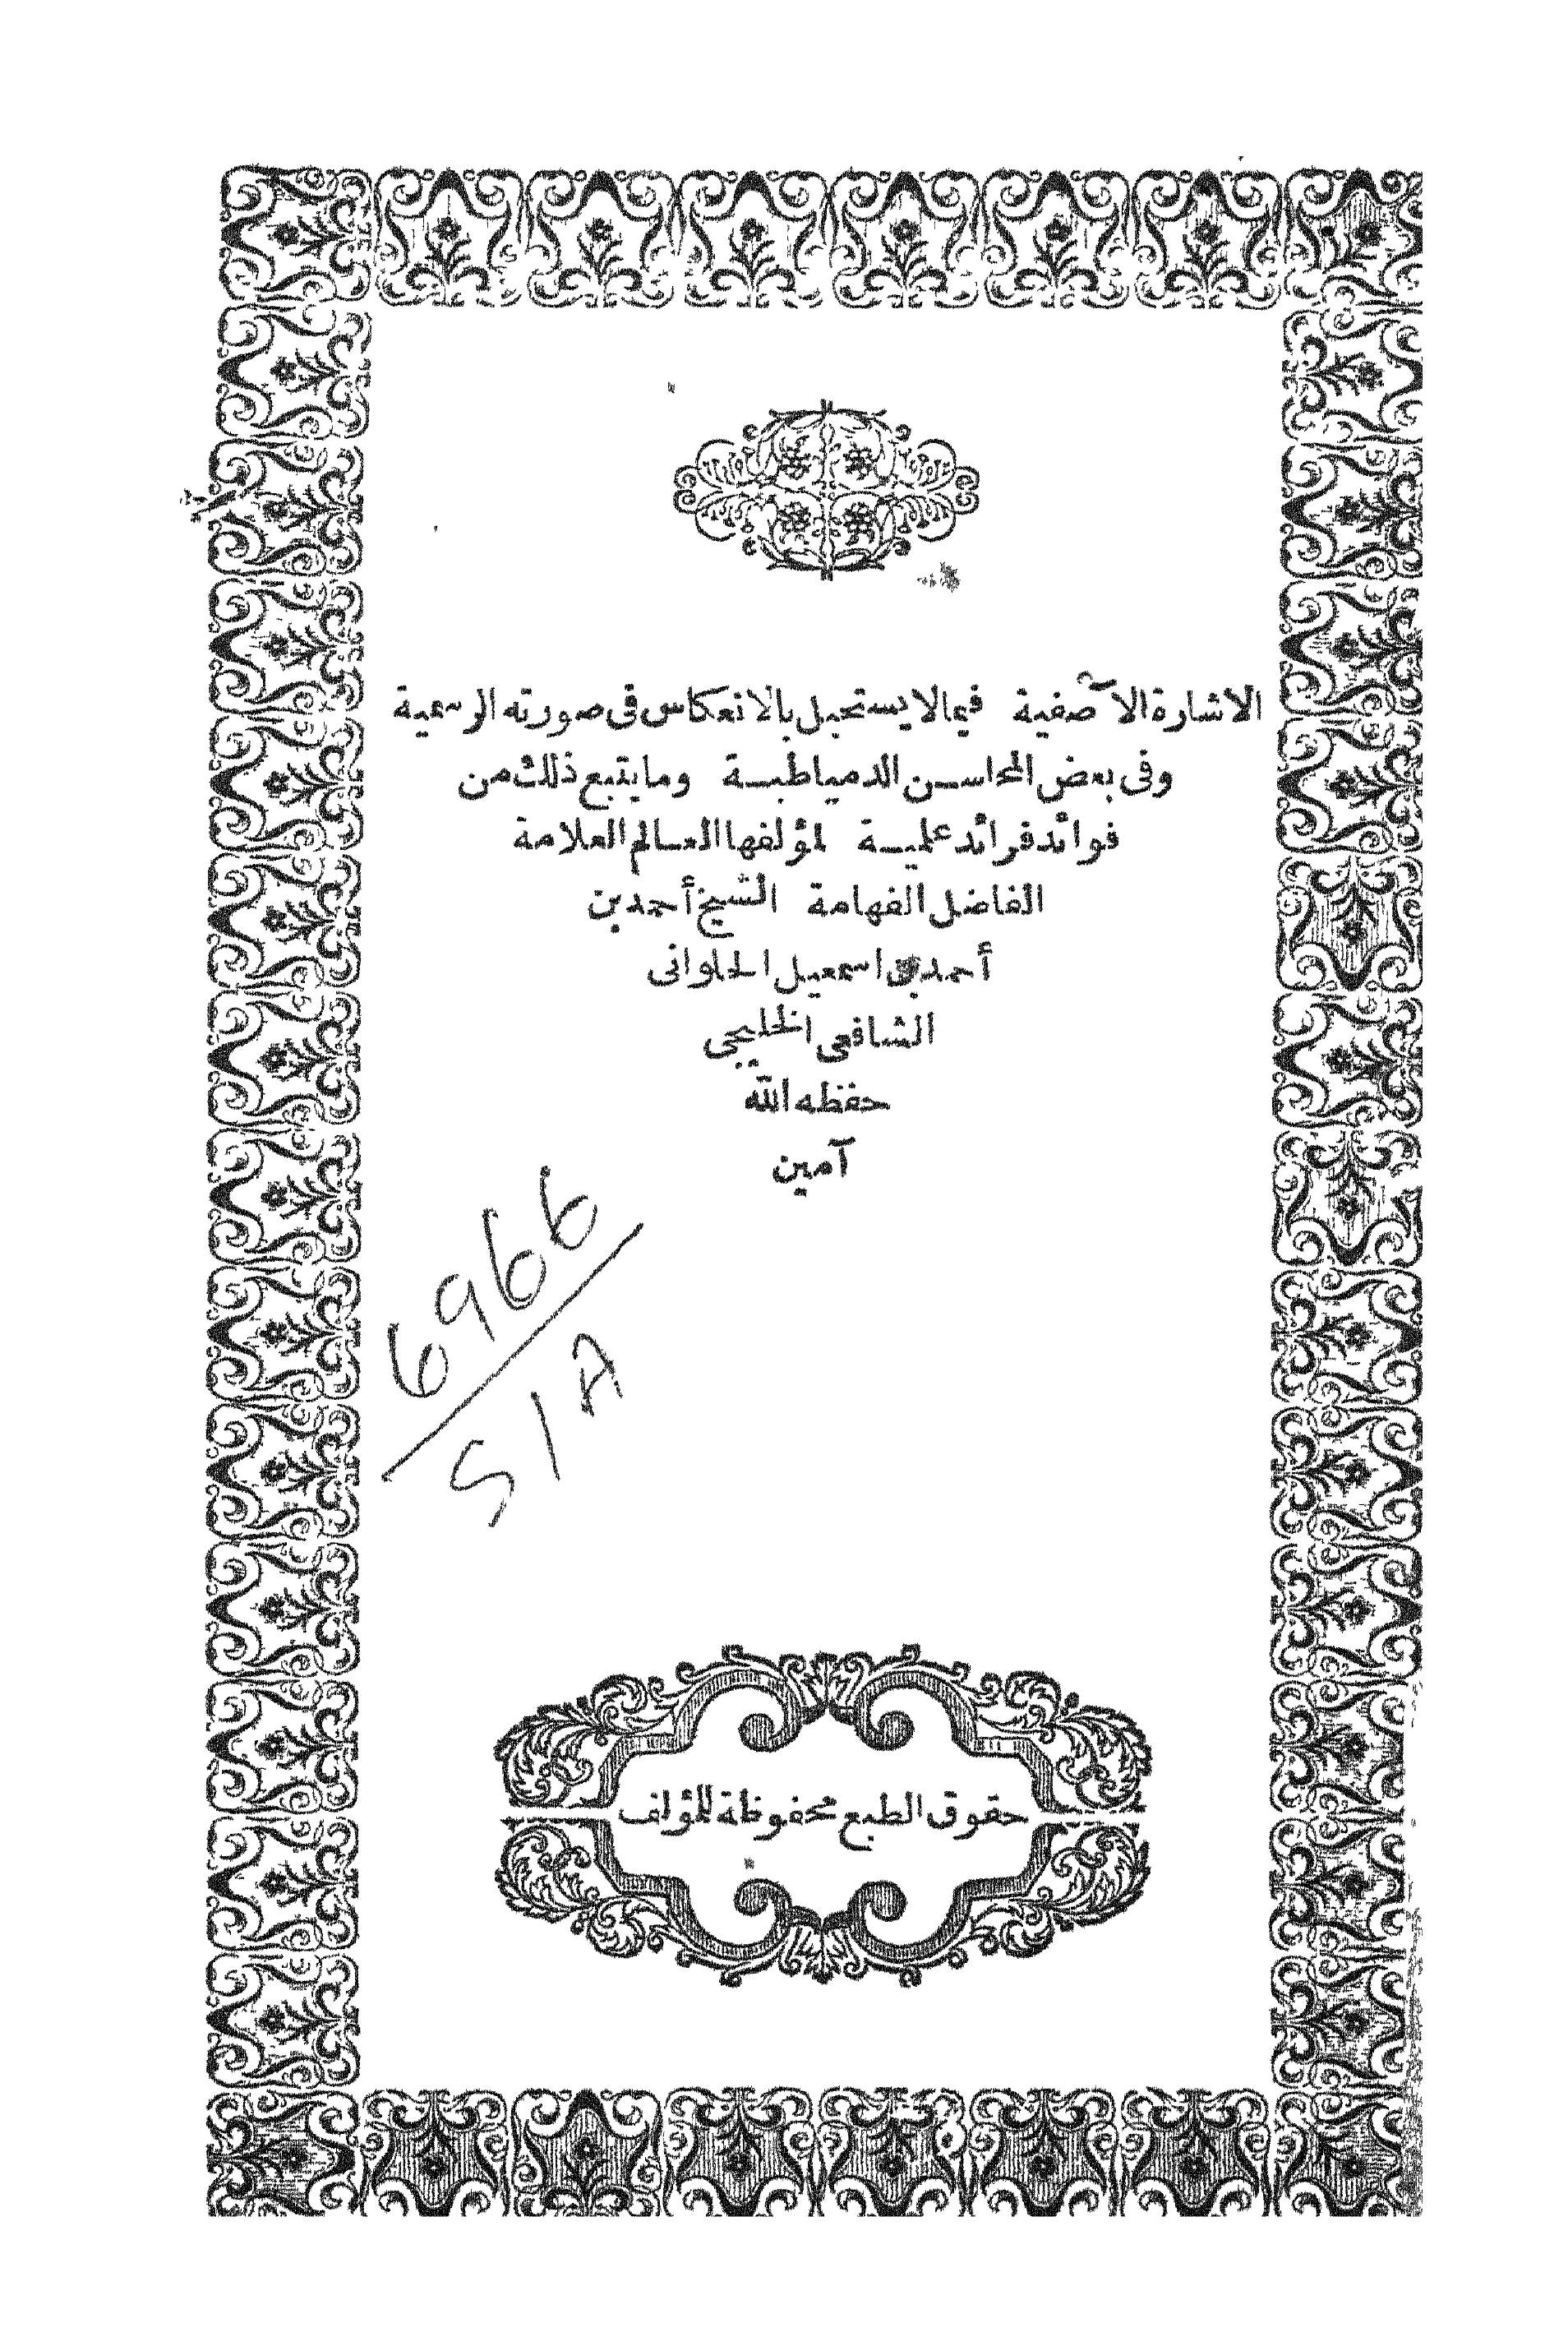 الاشارة الآصفية فيما لا يستحيل بالانعكاس في صورته الرسمية
وفي بعض المحاسن الدمياطية وما يتبع ذلك من
فوائد فرائد علمية لمؤلفها العالم العلامة
الفاضل الفهامة الشيخ أحمد بن
أحمد بن اسمعيل الحلواني
الشافعي الخليجي
حفظه الله
آمين
6966
SIA
حقوق الطبع محفوظة للمؤلف